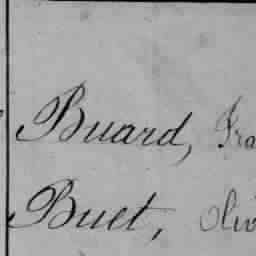 Buard, Fra
Buet, Oliv